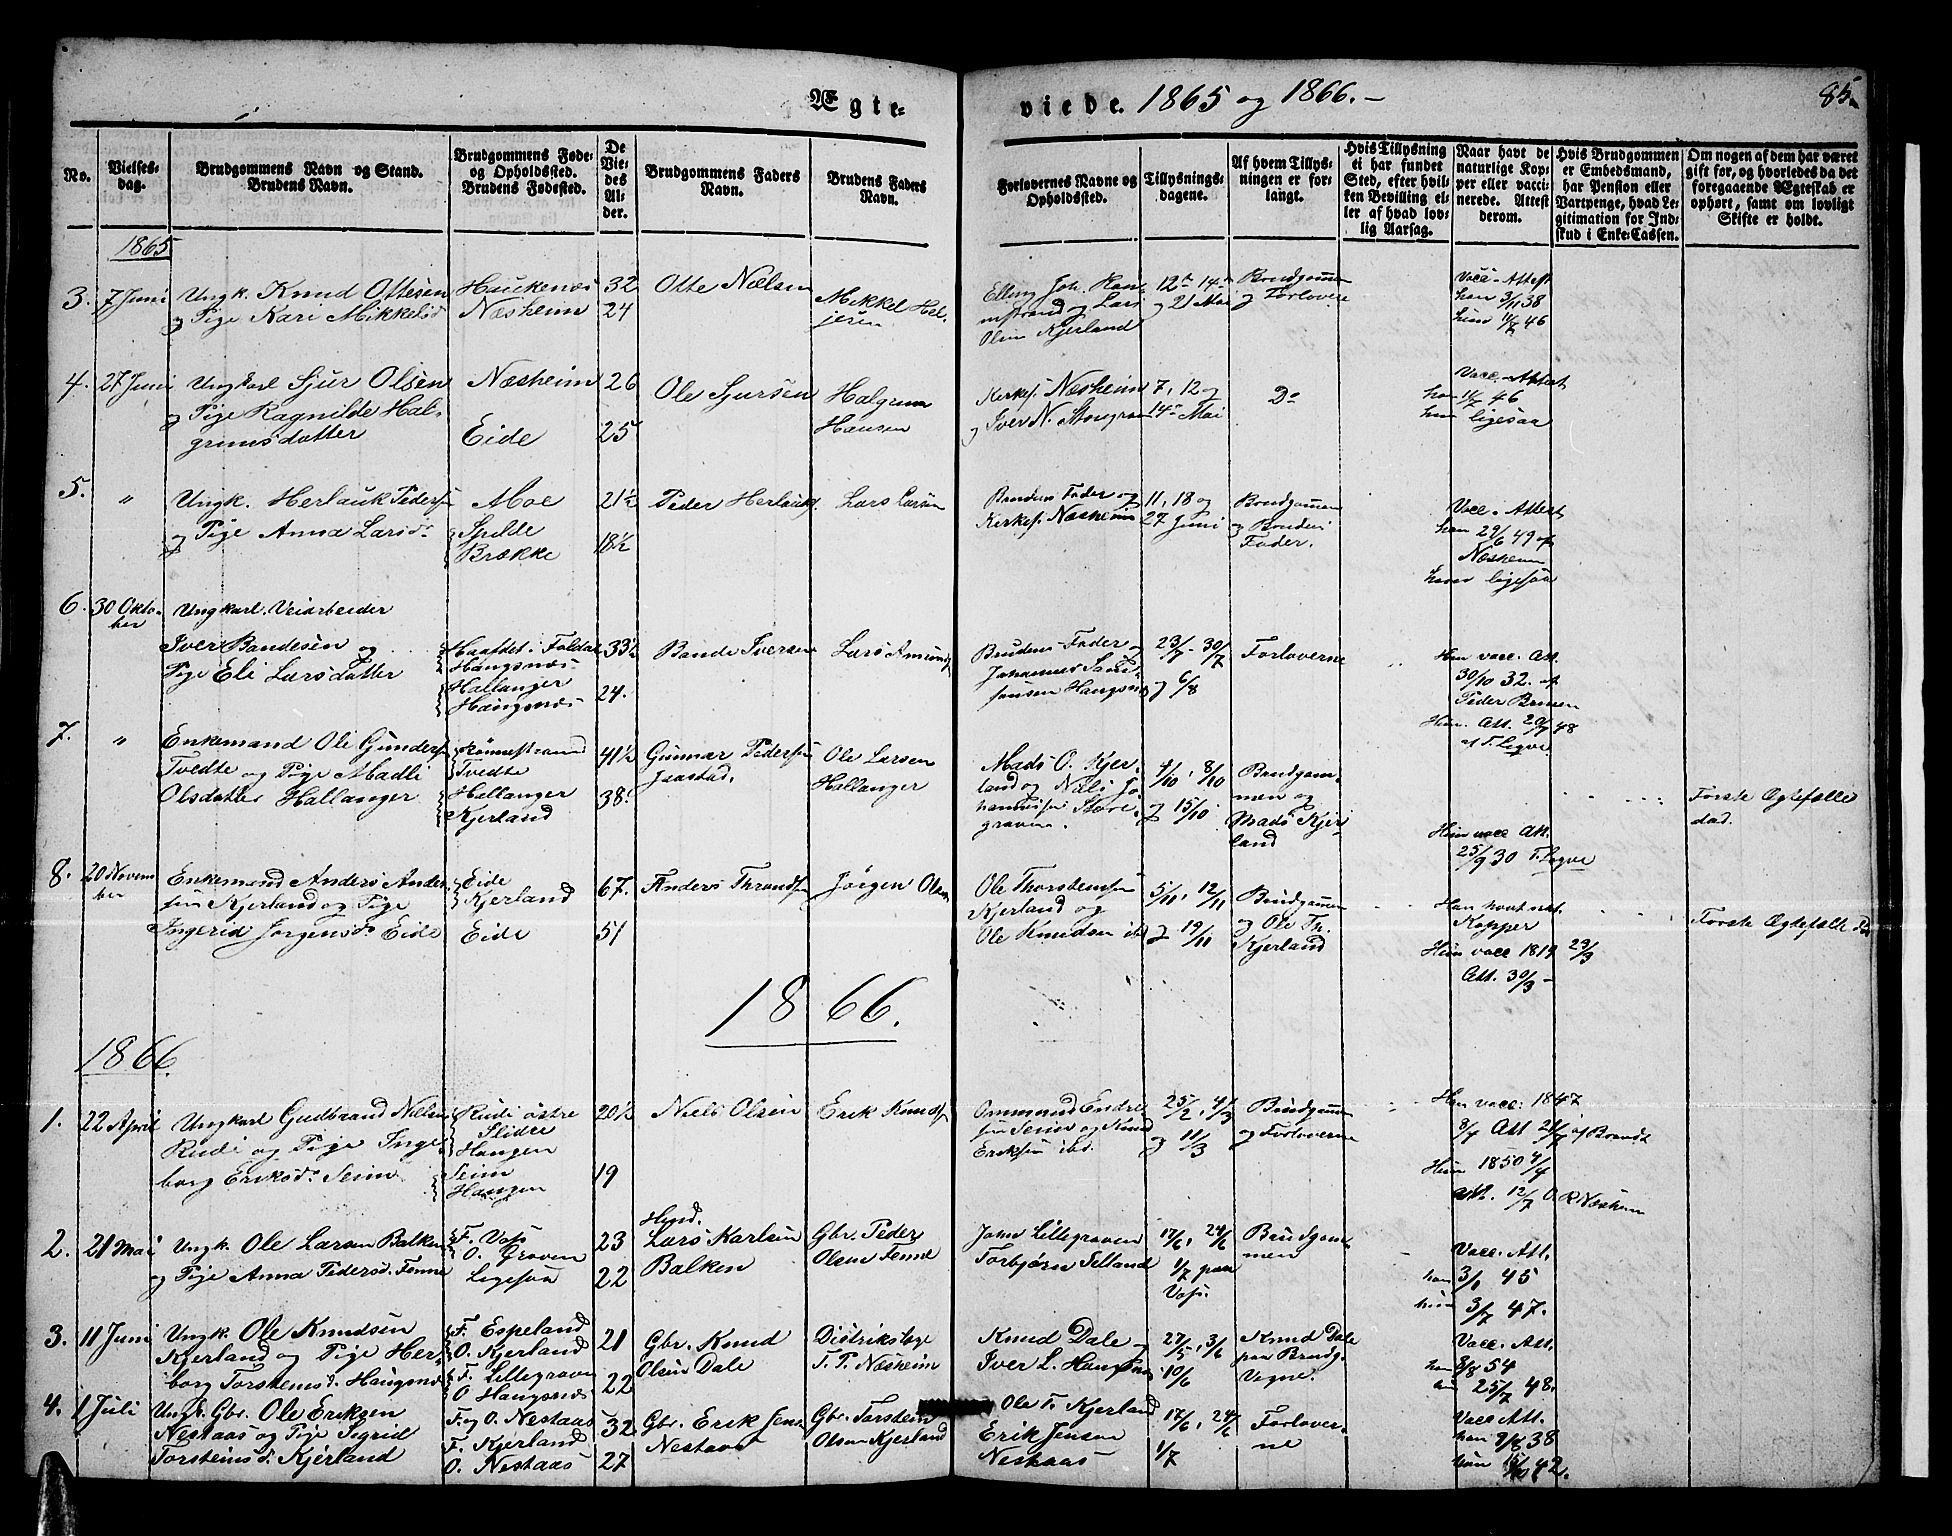 Ægte-
viede. 1865 og 1866.-
85.
No.
Vielses-
dag.
Brudgommens Navn og Stand.
Brudens Navn.
Brudgommens Føde-
og Opholdssted.
Brudens Fødested.
De
Vie-
des
Al-
der.
Brudgommens Faders
Navn.
Brudens Faders
Navn.
Forlovernes Navne og
Opholdssted.
Tillysnings-
dagene.
Af hvem Tillys-
ningen er for-
langt.
Hvis Tillysning
ei har fundet
Sted, efter hvil-
ken Bevilling el-
ler af hvad lov-
lig Aarsag.
Naar havt de
naturlige Kop-
per eller vacci-
nerede. Attest
derom.
Hvis Brudgommen
er Embedsmand,
har Pension eller
Vartpenge, hvad Le-
gitimation for Ind-
skud i Enke-Cassen.
Om nogen af dem har været
gift før, og hvorledes da det
foregaaende Ægteskab er
ophørt, samt om lovligt
Skifte er holdt.
1865
3. 7 Juni
Ungk. Knud Ottesen
og Pige Kari Mikkelsd
Haukenæs
Næsheim
32
24
Otte Nielsen
Mikkel Hel-
jesen
Elling Joh.
og Lars
Olsen Kjerland
12te 14de
og 21 Mai
Brudgommen
og Forlovere
Vacc. Attest
han 3/11 38
hun 11/7 46
4. 27 Juni
Ungkarl Sjur Olsen
og Pige Ragnilde Hal-
grimsdatter
Næsheim
Eide
26
25
Ole Sjursen
Halgrim
Hansen
Kirkes. Næsheim
og Iver N. Storegraven
7, 12 og
14de Mai
Do
Vacc. Attest
han 11/7 46
hun ligesaa
5. "
Ungk. Herlauk Peders
og Pige Anna Larsd.
Moe
Spilde
Brække
21½
18½
Peder Herlauks
Lars Larsen
Brudens Fader og
Kirkes. Næsheim
11, 18 og
27 Juni
Brudgommen
og Brudens
Fader.
Vacc. Attest
han 29/6 49 af
Næsheim
hun ligesaa
6. 30 Okto-
ber
Ungkarl. Veiarbeider
Iver Bandesen og
Pige Eli Larsdatter
Hangsnæs
Hallanger
Hangsnæs
33½
24.
Bande Iversen
Lars Amunds
Brudens Fader og
Johannes
Hangsnæs
23/7 - 30/7
og 6/8
Forloverne
Han vacc. Att.
30/10 32. af
Peder
Hun. Att. 20/7 48
7. "
Enkemand Ole Gunders
Tvedte og Pige Madli
Olsdatter Hallanger
Tvedte
Hallanger
Kjerland
41½
38.
Gunnar Peders
Jaastad.
Ole Larsen
Hallanger
Mads O. Kjer-
land og Niels Jo-
hannes Store-
graven.
4/10, 8/10
og 15/10
Brudgom-
men og
Mads Kjer-
land
Hun vacc Att.
25/9 30
Første Ægtefælle
død.
8. 20 Novem
ber
Enkemand Anders Ander-
sen Kjerland og Pige
Ingerid Jørgensd. Eide
Eide
Kjerland
Eide
67.
51
Anders Thrands
Jørgen Olsen
Ole Thorstens
Kjerland og
Ole Knudsen ibd
5/11, 12/11
og 19/11
Brudgommen
og Ole Th.
Kjerland
Han havt nat.
Kopper
Hun vacc 1819 23/3
Att. 30/3 -
Første Ægtefælle
1866.
1866.
1. 22 April
Ungkarl Gudbrand Nielsen
Rudi og Pige Inge-
borg Eriksd. Seim
Rudi østre
Slidre
Hangen
Seim
Hangen
20½
19
Niels Olsen
Erik Knuds
Ommund Endre-
sen Seim og Knud
Eriksen ibd.
25/2, 4/3
og 11/3
Brudgommen
og Forloverne
Han vacc: 1847
8/7 Att 21/7 af Brandt
Hun 1850 4/7
att. 12/7 O R Næsheim
2. 21 Mai
Ungk. Ole Larsen Balken
og Pige Anna Pedersd. Tenne
F. Voss
O. Graven
Ligesaa
23
22
Husd.
Lars Karlsen
Balken
Gbr. Peder
Olsen Tenne
John Lillegraven
Torbjørn Selland
17/6, 24/6
1/7 paa
Voss.
Brudgom-
men
Vacc. Att.
han 3/1 45
hun 3/7 47.
3. 11 Juni
Ungk. Ole Knudsen
Kjerland og Pige Her-
borg Torstensd. Hangsnæs
F. Espeland
O. Kjerland
F. Lillegraven
O Hangsnæs
21
22
Gbr. Knud
Olsen Dale
Distriktslæge
T. P. Næsheim
Knud Dale og
Iver L. Hangsnæs
27/5, 3/6
10/6
Knud Dale
paa Brudg.
Vegne.
Vacc. Att.
han 8/8 54
hun 25/7 48.
4. 1 Juli
Ungk. Gbr. Ole Eriksen
Nestaas og Pige Sigrid
Torsteinsd. Kjerland
F. og O. Nestaas
F. Kjerland
O. Nestaas
32
27
Gbr. Erik Jens
Nestaas
Gbr. Torstein
Olsen Kjerland
Ole T. Kjerland
Erik Jensen
Nestaas
17/6, 24/6
1/7
Forlover-
ne
Vacc. Att.
han 9/8 38
hun 15/10 42.